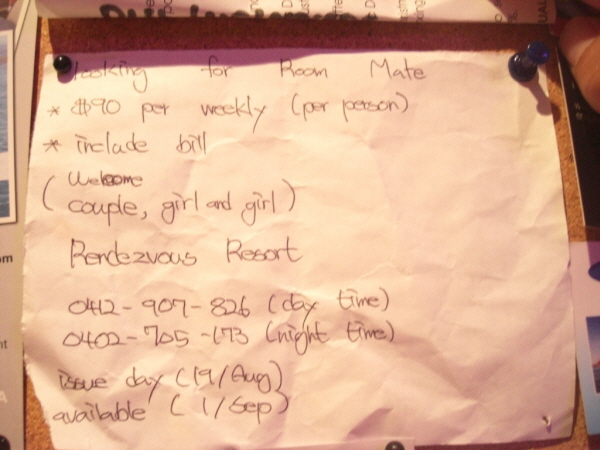 Looking for Room Mate
* $90 per weekly (per person)
* include bill
(Welcome
couple, girl and girl)
Rendezvous Resort
0412-907-826 (day time)
0402-705-173 (night time)
issue day (19/Aug)
available (1/Sep)